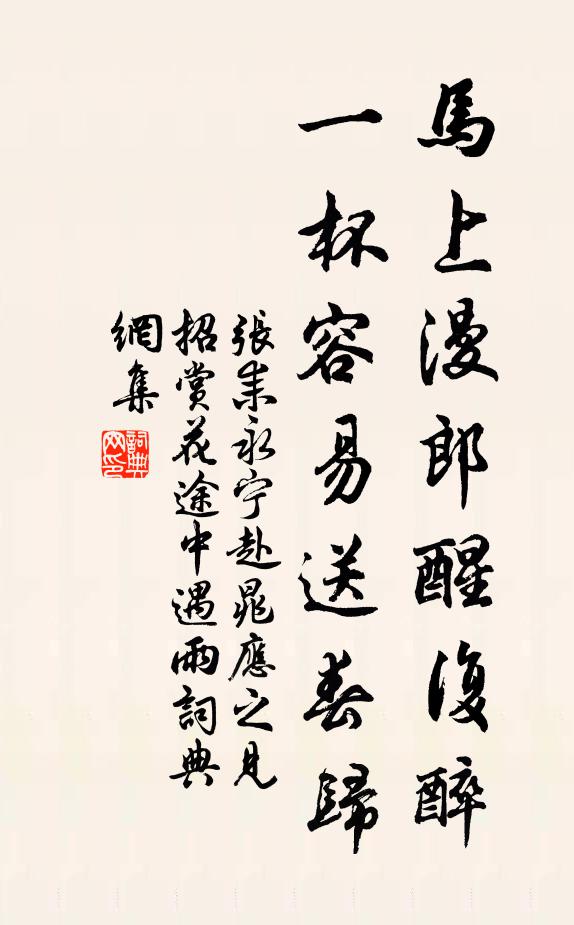 馬上漫郎醒復醉
一杯容易送春歸
張耒永宁赴晁應之見
招賞花途中遇雨詞典
網集
詞典
网印